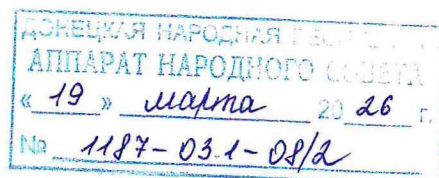 ДОНЕЦКАЯ НАРОДНАЯ
АППАРАТ НАРОДНОГО СОВЕТА
« 19 » марта 20 26 г.
№ 1187-03.1-08/2